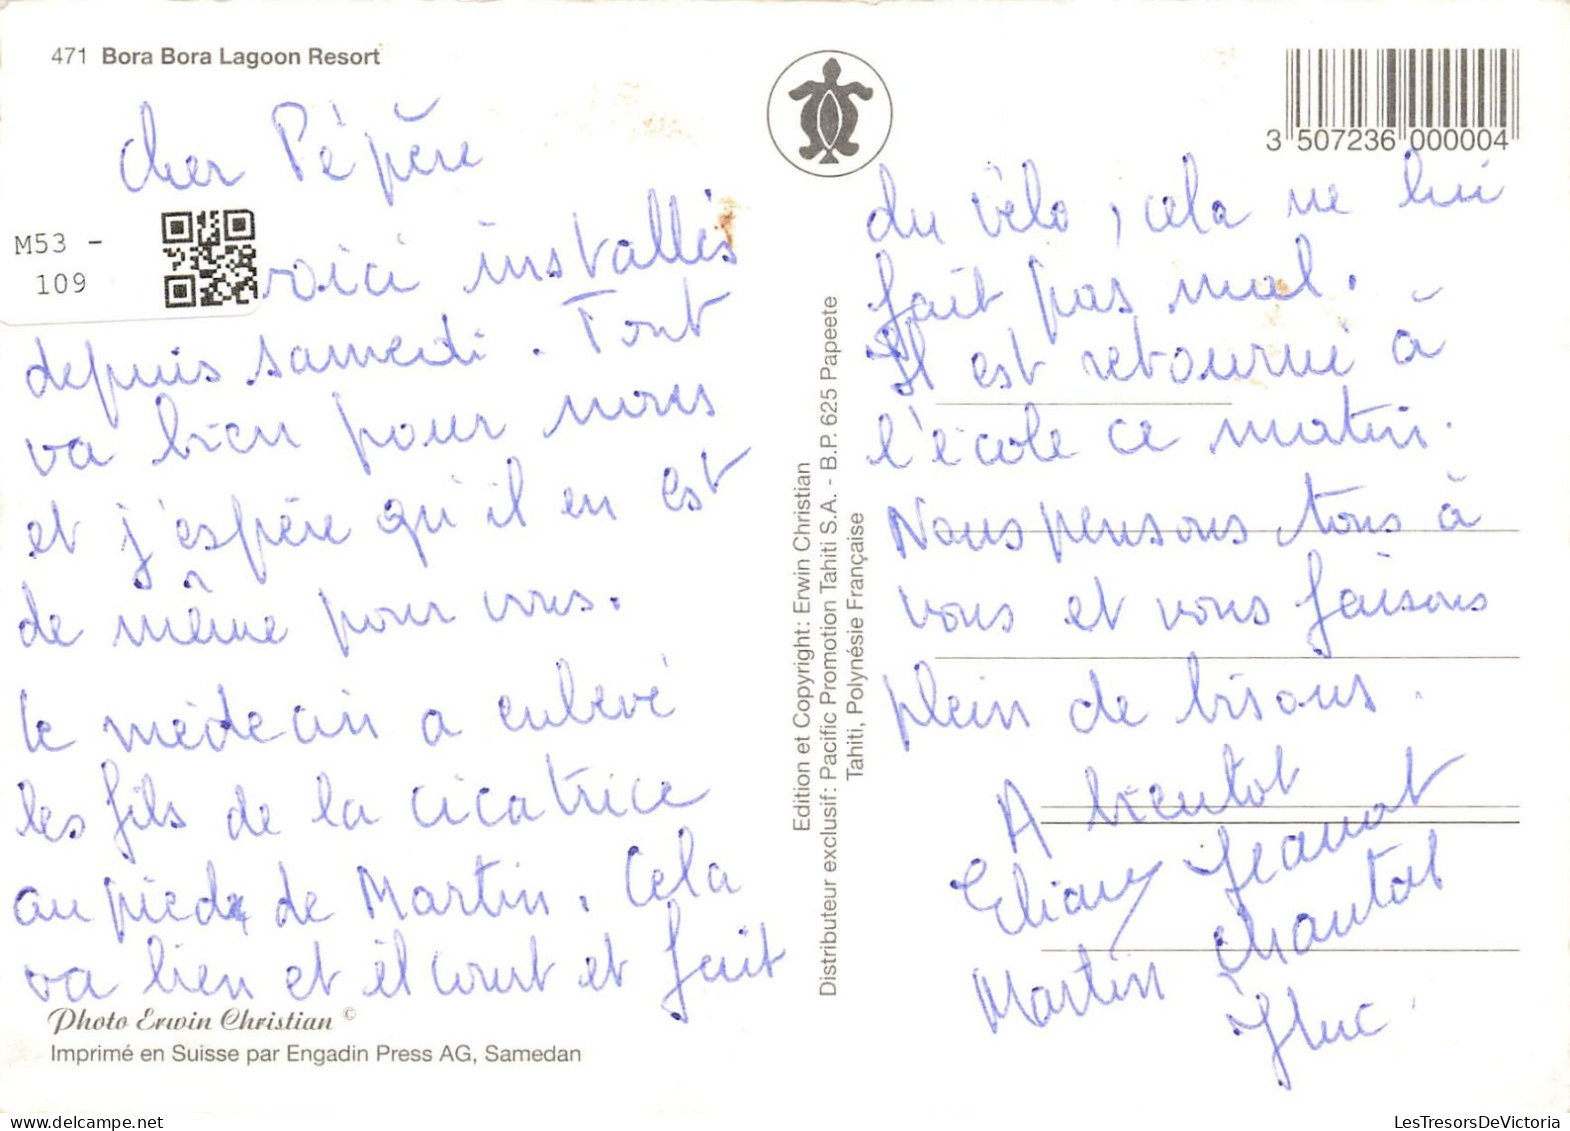 471 Bora Bora Lagoon Resort
Cher Pépère
voici installés
depuis samedi. Tout
va bien pour nous
et j'espère qu'il en est
de même pour vous.
le médecin a enlevé
les fils de la cicatrice
au pied de Martin. Cela
va bien et il court et fait
Photo Erwin Christian ©
Imprimé en Suisse par Engadin Press AG, Samedan
M53 -
109
Edition et Copyright: Erwin Christian
Distributeur exclusif: Pacific Promotion Tahiti S.A. - B.P. 625 Papeete
Tahiti, Polynésie Française
3 507236 000004
du vélo, cela ne lui
fait pas mal.
Il est retourné à
l'école ce matin.
Nous pensons tous à
vous et vous faisons
plein de bisous.
A bientot
Eliane Jeannot
Martin Chantal
Jluc
LesTresorsDeVictoria